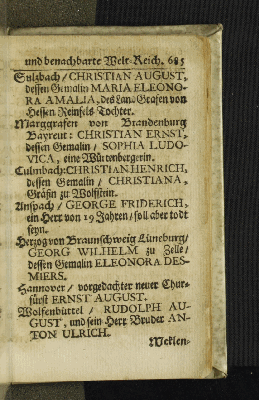 und benachbarte Welt-Reich. 685
Sulzbach / CHRISTIAN AUGUST,
dessen Gemalin MARIA ELEONO-
RA AMALIA, des Lan-Grafen von
Hessen Reinfels Tochter.
Marggrafen von Brandenburg
Bayreut: CHRISTIAN ERNST,
dessen Gemalin / SOPHIA LUDO-
VICA, eine Würtenbergerin.
Culmbach: CHRISTIAN HENRICH,
dessen Gemalin / CHRISTIANA,
Gräfin zu Wolfstein.
Anspach / GEORGE FRIDERICH,
ein Herr von 19 Jahren / soll aber todt
seyn.
Herzog von Braunschweig Lüneburg /
GEORG WILHELM zu Zelle /
dessen Gemalin ELEONORA DES-
MIERS.
Hannover / vorgedachter neuer Chur-
fürst ERNST AUGUST.
Wolfenbüttel / RUDOLPH AU-
GUST, und sein Herr Bruder AN-
TON ULRICH.
Meklen-